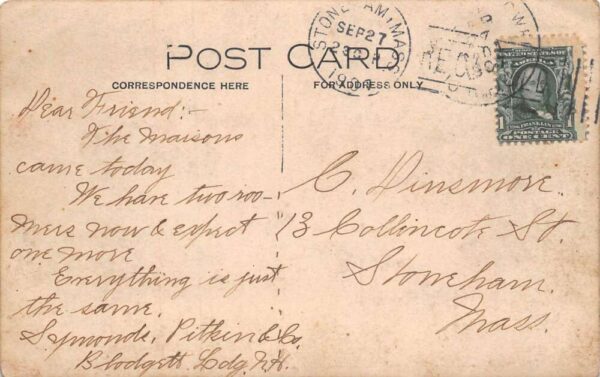 POST CARD
CORRESPONDENCE HERE
FOR ADDRESS ONLY
STONEHAM, MASS.
SEP 27
REC'D
POSTAGE
ONE CENT
Dear Friend:-
The Masons
came today
We have two roo-
mers now & expect
one more
Everything is just
the same.
Symonds, Pitkin & Co.
Blodgett Ldg. N.H.
C. Dinsmore.
13 Collincote St.
Stoneham.
Mass.